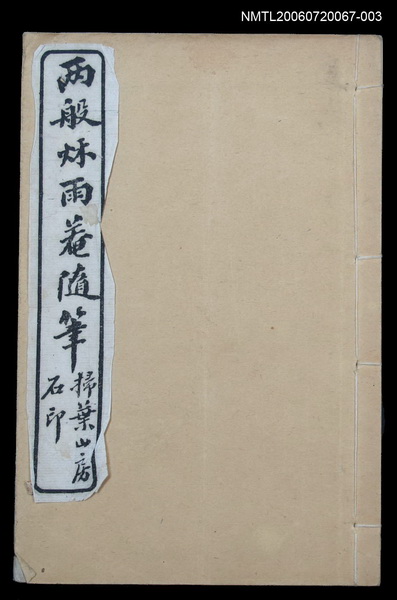 NMTL20060720067-003
两般秌雨菴随筆
掃葉山房
石印